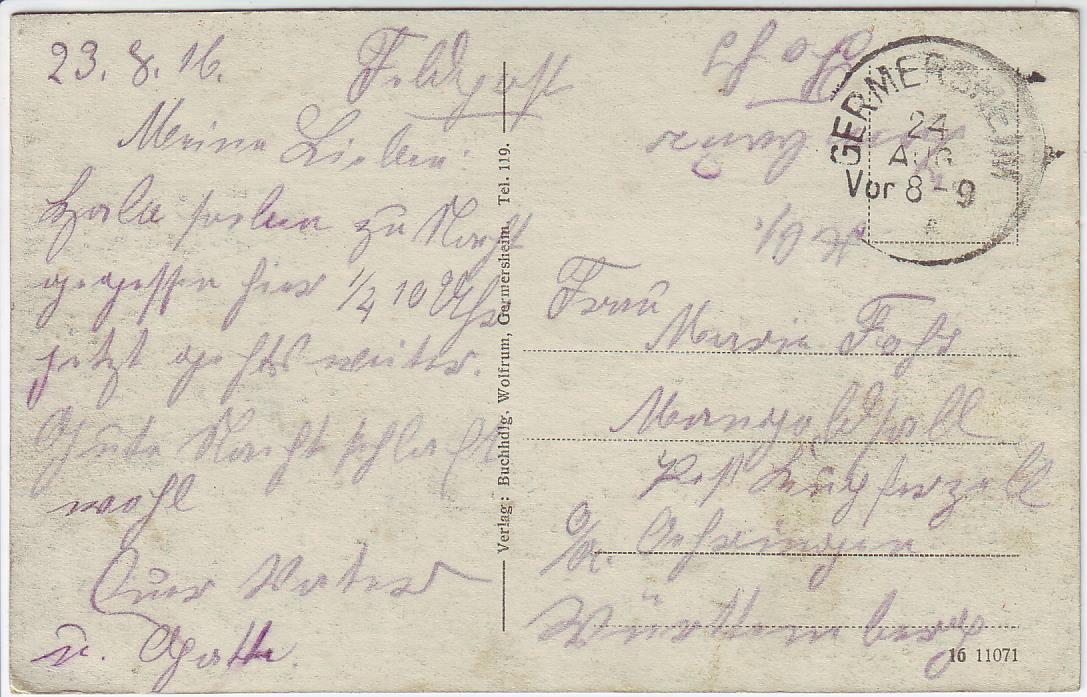 23.8.16.
Feldpost
Meine Lieben!
Habe soeben zu Nacht
gegessen hier 1/4 10 Uhr
jetzt gehts weiter.
Gute Nacht schlaft
wohl
Euer Vater
u. Gatte.
Verlag: Buchhdlg. Wolfrum, Germersheim Tel. 119.
GERMERSHEIM
24
AUG
Vor 8-9
Frau
Maria Fohr
Mangoldsall
Post Kupferzell
O/A. Oehringen
Württemberg
16 11071